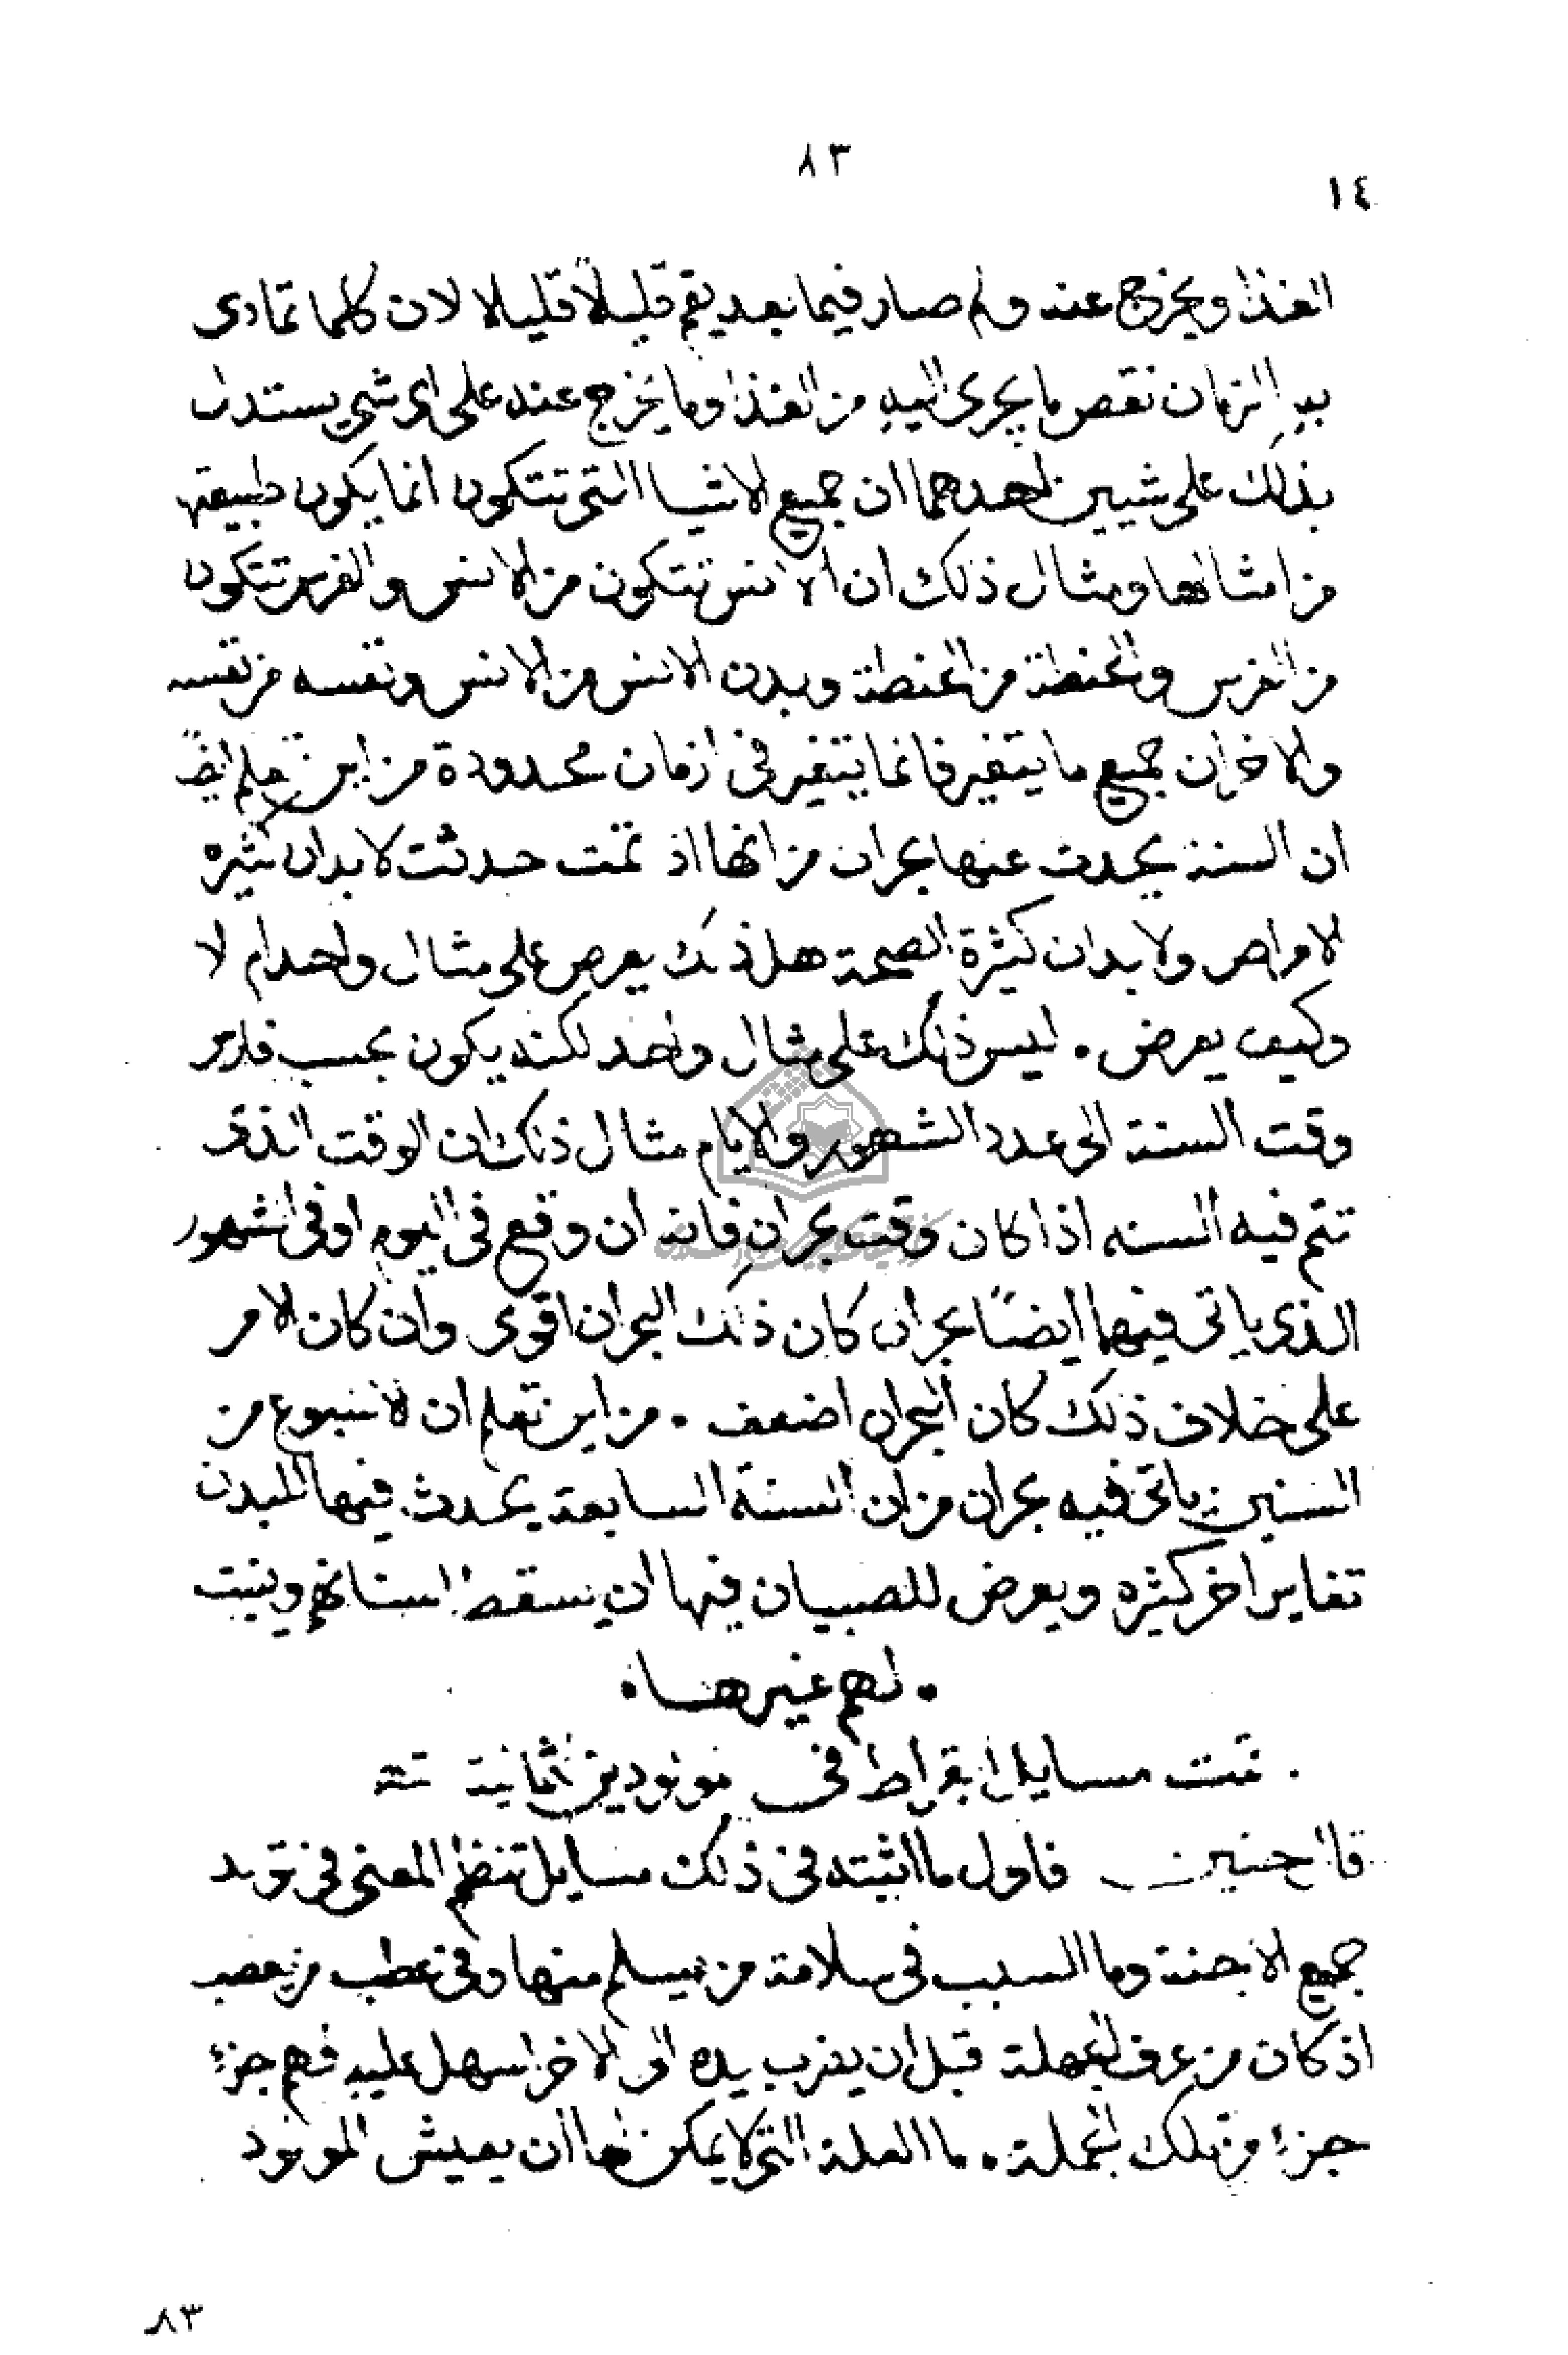 ٨٣
١٤
الغذا ويخرج عنه ولم صار فيما بعد يقم قليلاً قليلا لان كلما تمادى
به الزمان نقص ما يجرى اليه من الغذا وما يخرج عنه على اى شي يستدل
بذلك على شيين احدهما ان جميع الاشيا التى تتكون انما يكون طبيعتها
من امثالها ومثال ذلك ان الانس تتكون من الانس والفرس تتكون
من الفرس والحنطة من الحنطة وبدن الانس من الانس ونفسه من نفسه
والاخر ان جميع ما يتغير فانما يتغير فى ازمان محدودة من اين تعلم ايضً
ان السنة يحدث عنها بحران من انها اذ تمت حدثت لابدان كثيره
لامراض ولابدان كثيرة الصحة هل ذلك يعرض على مثال واحد ام لا
وكيف يعرض . ليس ذلك على مثال واحد لكنه يكون بحسب
وقت السنة الى عدد الشهور والايام مثال ذلك ان الوقت الذى
تتم فيه السنه اذا كان وقت بحران فانه ان وقع فى اليوم او فى الشهور
الذى ياتى فيهما ايضًا بحران كان ذلك البحران اقوى وان كان الامر
على خلاف ذلك كان البحران اضعف . من اين تعلم ان لاسبوع من
السنين ياتى فيه بحران من ان السنة السابعة يحدث فيها للبدن
تغاير اخر كثيره ويعرض للصبيان فيها ان يسقط اسنانهم وينبت
. لهم غيرها .
. تمت مسايل ابقراط فى مولودين ثمانية
قال حنين فاول ما اثبته فى ذلك مسايل تنظم المعنى فى تولد
جميع الاجنة وما السبب فى سلامة من يسلم منها وفى عطب من يعصب
اذ كان من عرف الجملة قبل ان يضرب يده الى الاخر اسهل عليه فهم جزء
جزء من تلك الجملة . ما العلة التى لا يمكن لها ان يعيش المولود
٨٣